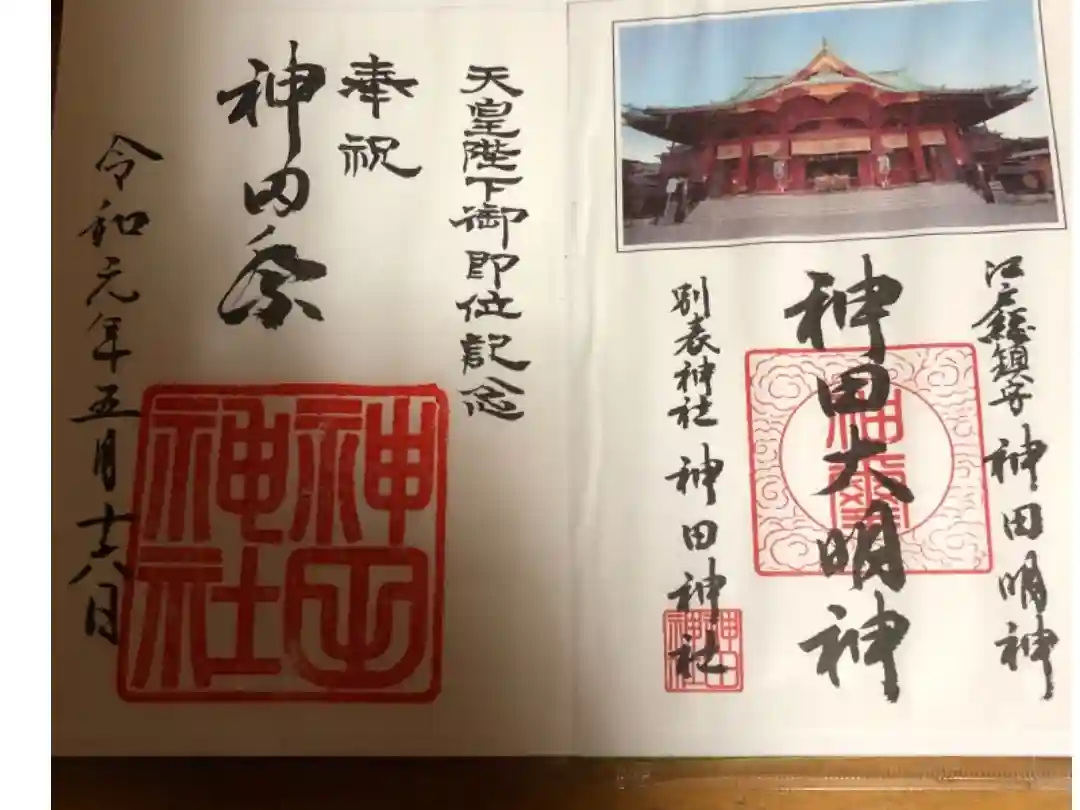 江戸総鎮守 神田明神
神田大明神
別表神社 神田神社
神田神社
天皇陛下御即位記念
奉祝
神田祭
令和元年五月十六日
神田神社